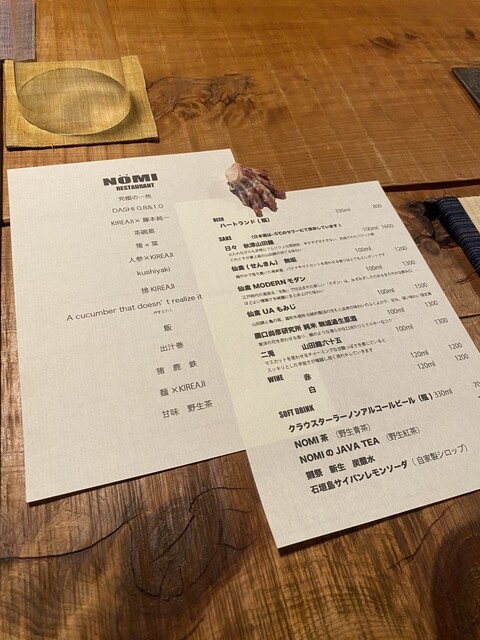 NOMI
RESTAURANT
究極の一枚
DASHI 0.8&1.0
KIREAJI× 藤本純一
茶碗蒸
猪 × 菜
人参×KIREAJI
kushiyaki
捨 KIREAJI
A cucumber that doesn't realize it
飯
出汁巻
猪 鹿 鉄
麺 ×KIREAJI
甘味 野生茶
BEER
ハートランド（瓶） 330ml 800
SAKE （日本酒は-5℃のセラーにて保存しています）
日々 秋津山田錦 100ml 1600
仙禽（せんきん） 無垢 100ml 1200
仙禽 MODERN モダン 100ml 1300
仙禽 UA もみじ 100ml 1500
農口尚彦研究所 純米 無濾過生原酒 100ml 1300
二兎 山田錦六十五 100ml 1300
WINE 赤 120ml 1200
白 120ml 1200
SOFT DRINK
クラウスターラーノンアルコールビール（瓶）330ml
NOMI 茶 （野生青茶）
NOMI の JAVA TEA （野生紅茶）
顕祭 新生 炭酸水
石垣島サイパンレモンソーダ（自家製シロップ）